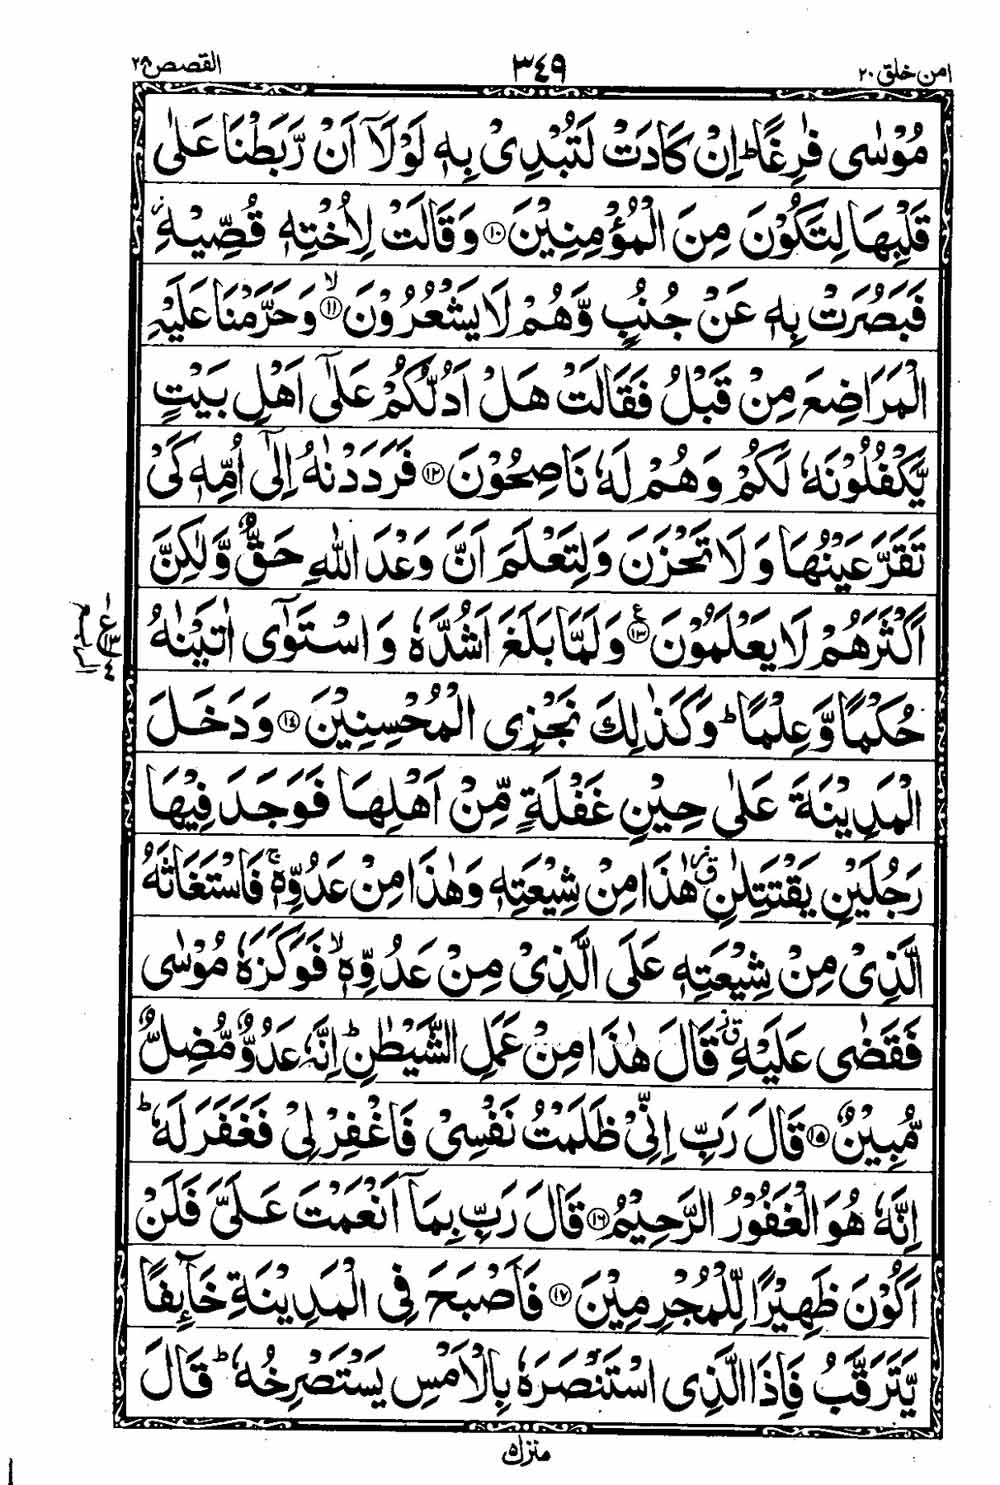 امن خلق ٢٠ ٣٤٩ القصص ٢٨
مُوْسٰى فٰرِغًا ؕ اِنْ كَادَتْ لَتُبْدِیْ بِهٖ لَوْلَاۤ اَنْ رَّبَطْنَا عَلٰى
قَلْبِهَا لِتَكُوْنَ مِنَ الْمُؤْمِنِیْنَ ⑩ وَقَالَتْ لِاُخْتِهٖ قُصِّیْهِ ؗ
فَبَصُرَتْ بِهٖ عَنْ جُنُبٍ وَّهُمْ لَا یَشْعُرُوْنَ ⑪ ۙ وَحَرَّمْنَا عَلَیْهِ
الْمَرَاضِعَ مِنْ قَبْلُ فَقَالَتْ هَلْ اَدُلُّكُمْ عَلٰۤى اَهْلِ بَیْتٍ
یَّكْفُلُوْنَهٗ لَكُمْ وَهُمْ لَهٗ نَاصِحُوْنَ ⑫ فَرَدَدْنٰهُ اِلٰۤى اُمِّهٖ كَیْ
تَقَرَّ عَیْنُهَا وَلَا تَحْزَنَ وَلِتَعْلَمَ اَنَّ وَعْدَ اللّٰهِ حَقٌّ وَّلٰكِنَّ
اَكْثَرَهُمْ لَا یَعْلَمُوْنَ ⑬ ع وَلَمَّا بَلَغَ اَشُدَّهٗ وَاسْتَوٰۤى اٰتَیْنٰهُ
حُكْمًا وَّعِلْمًا ؕ وَكَذٰلِكَ نَجْزِی الْمُحْسِنِیْنَ ⑭ وَدَخَلَ
الْمَدِیْنَةَ عَلٰى حِیْنِ غَفْلَةٍ مِّنْ اَهْلِهَا فَوَجَدَ فِیْهَا
رَجُلَیْنِ یَقْتَتِلٰنِ ؗ هٰذَا مِنْ شِیْعَتِهٖ وَهٰذَا مِنْ عَدُوِّهٖ ۚ فَاسْتَغَاثَهُ
الَّذِیْ مِنْ شِیْعَتِهٖ عَلَى الَّذِیْ مِنْ عَدُوِّهٖ ۙ فَوَكَزَهٗ مُوْسٰى
فَقَضٰى عَلَیْهِ ؗ قَالَ هٰذَا مِنْ عَمَلِ الشَّیْطٰنِ ؕ اِنَّهٗ عَدُوٌّ مُّضِلٌّ
مُّبِیْنٌ ⑮ قَالَ رَبِّ اِنِّیْ ظَلَمْتُ نَفْسِیْ فَاغْفِرْ لِیْ فَغَفَرَ لَهٗ ؕ
اِنَّهٗ هُوَ الْغَفُوْرُ الرَّحِیْمُ ⑯ قَالَ رَبِّ بِمَاۤ اَنْعَمْتَ عَلَیَّ فَلَنْ
اَكُوْنَ ظَهِیْرًا لِّلْمُجْرِمِیْنَ ⑰ فَاَصْبَحَ فِی الْمَدِیْنَةِ خَآىِٕفًا
یَّتَرَقَّبُ فَاِذَا الَّذِی اسْتَنْصَرَهٗ بِالْاَمْسِ یَسْتَصْرِخُهٗ ؕ قَالَ
منزل ٥